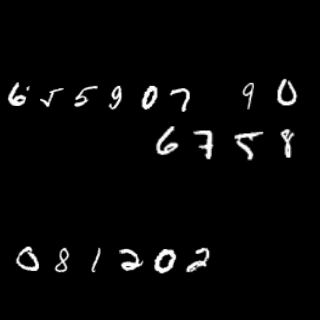 655907 90
6758
081202